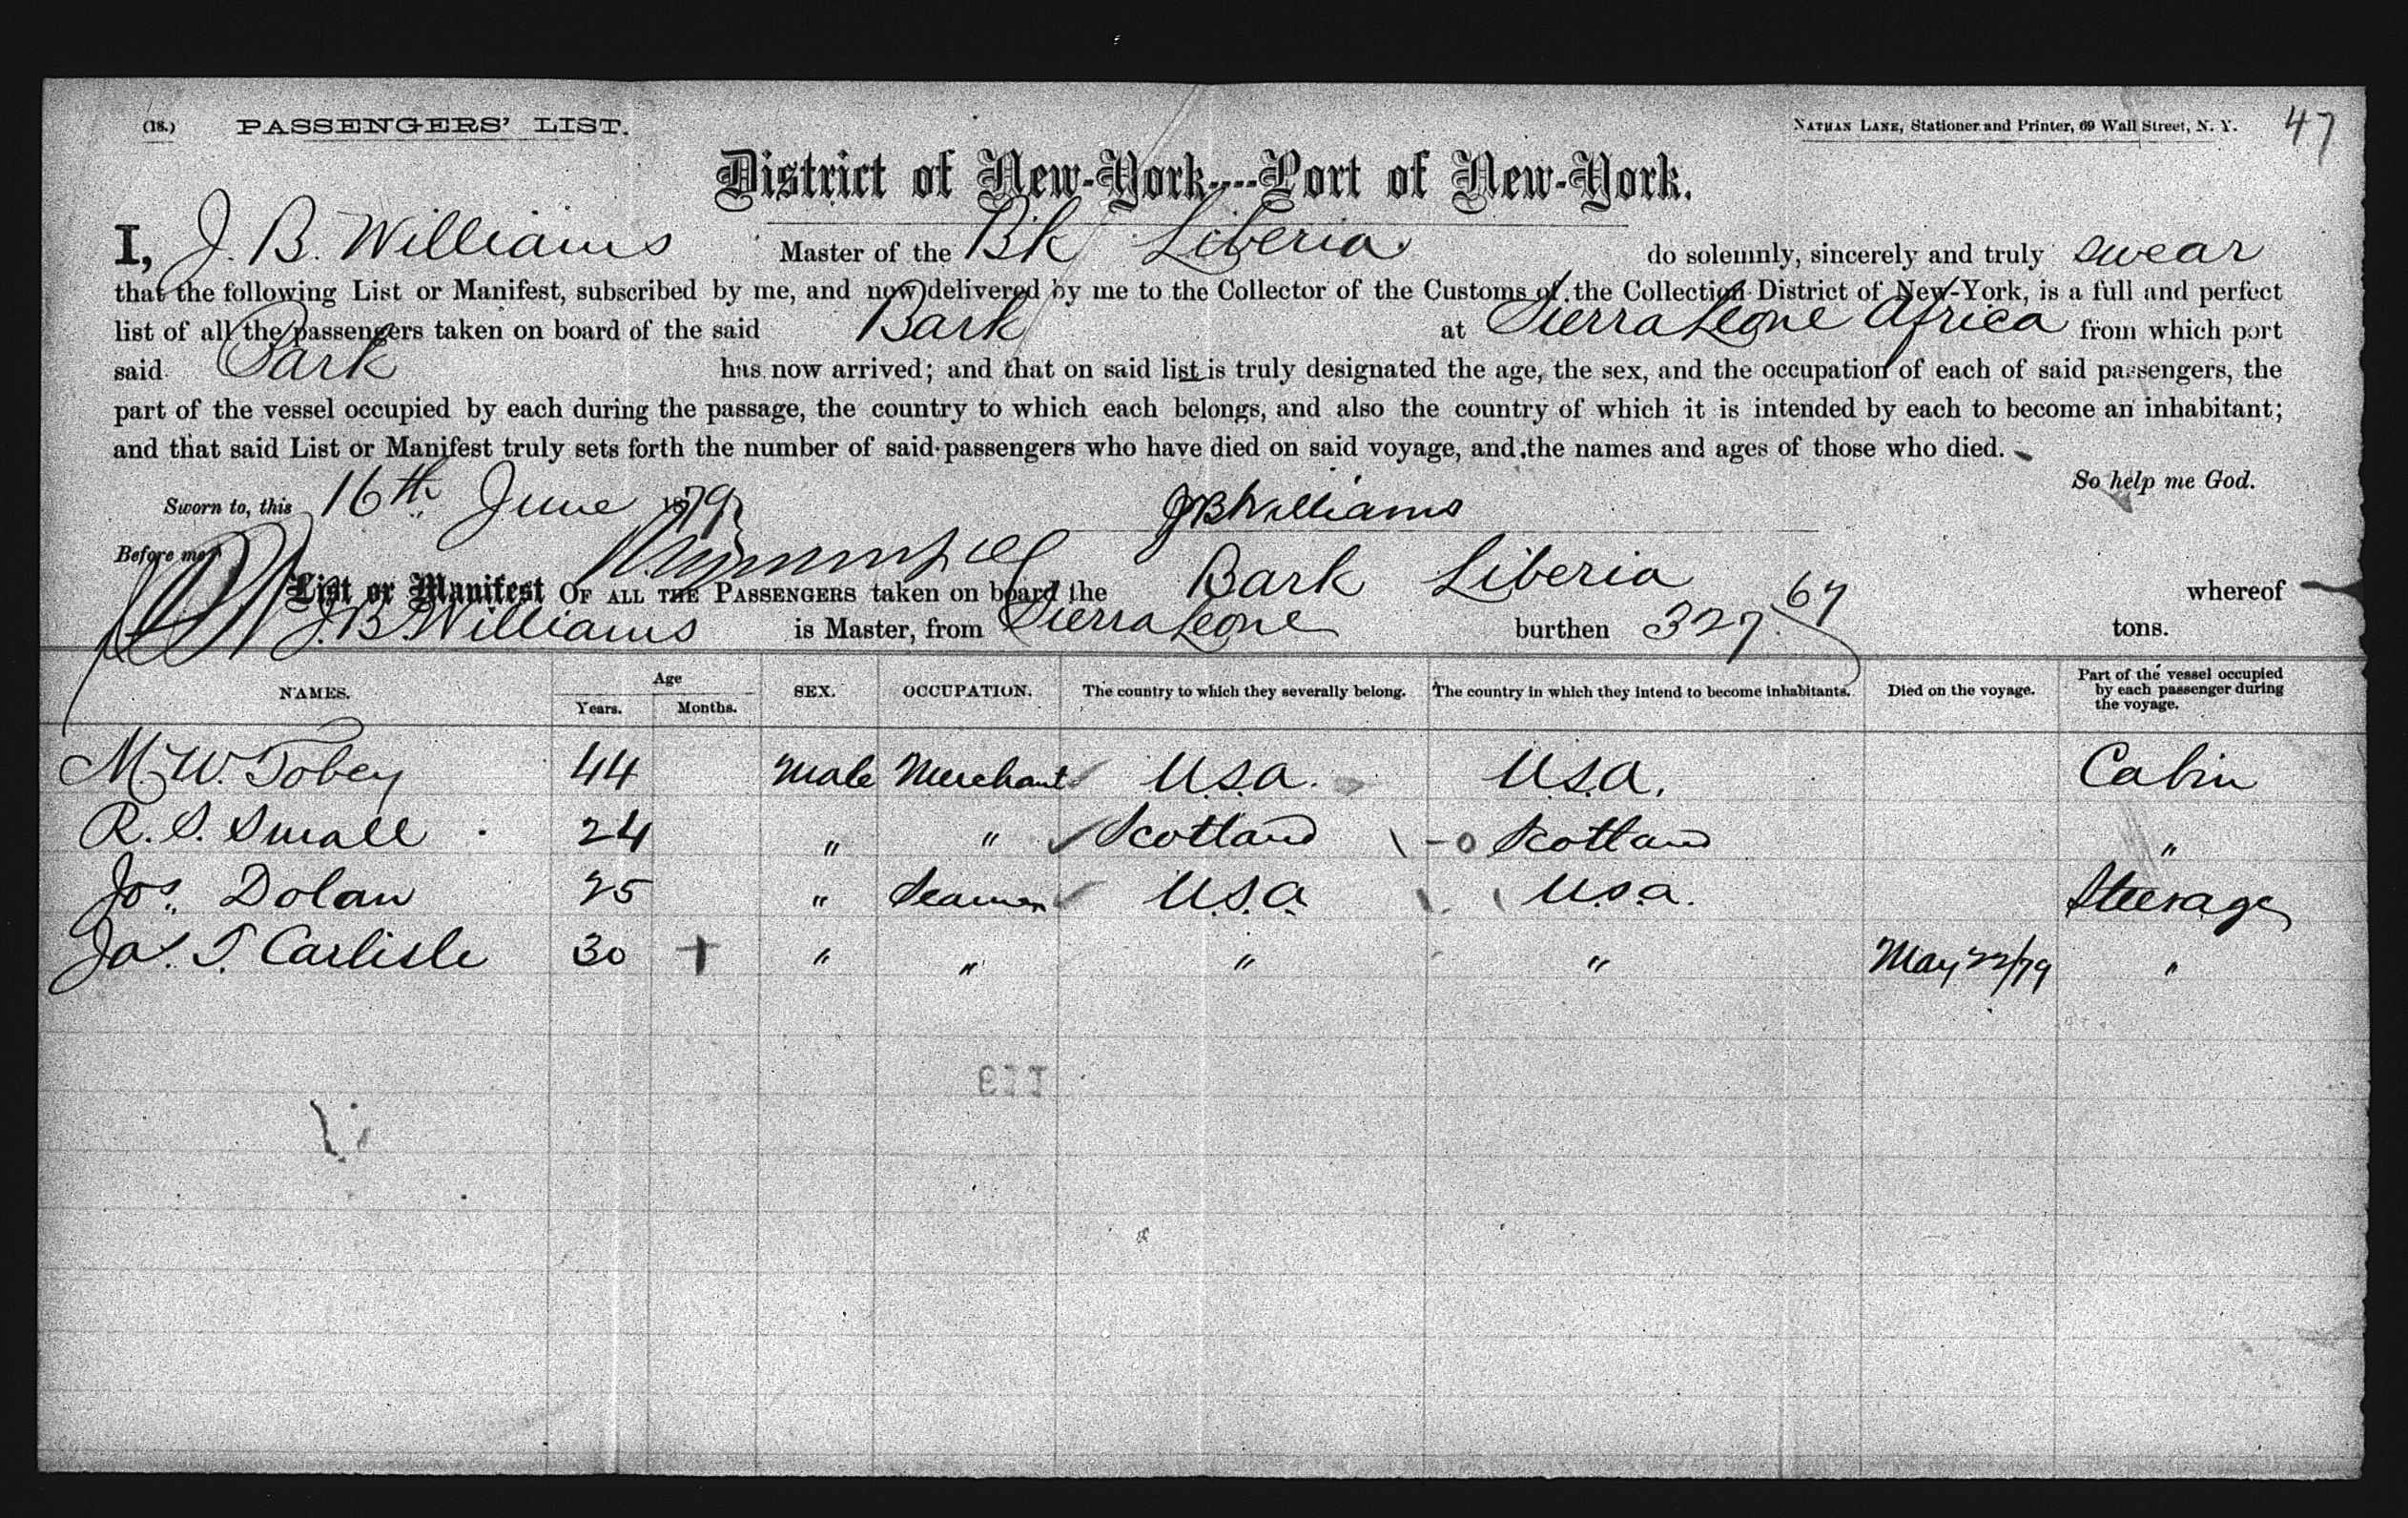 (18.) PASSENGERS' LIST.
NATHAN LANE, Stationer and Printer, 69 Wall Street, N. Y. 47
District of New-York---Port of New-York.
I, J. B. Williams Master of the Bk Liberia do solemnly, sincerely and truly swear
that the following List or Manifest, subscribed by me, and now delivered by me to the Collector of the Customs of the Collection District of New-York, is a full and perfect
list of all the passengers taken on board of the said Bark at Sierra Leone Africa from which port
said Bark has now arrived; and that on said list is truly designated the age, the sex, and the occupation of each of said passengers, the
part of the vessel occupied by each during the passage, the country to which each belongs, and also the country of which it is intended by each to become an inhabitant;
and that said List or Manifest truly sets forth the number of said passengers who have died on said voyage, and the names and ages of those who died.
So help me God.
Sworn to, this 16th June 1879 JB Williams
Before me,
List or Manifest OF ALL THE PASSENGERS taken on board the Bark Liberia whereof
J. B. Williams is Master, from Sierra Leone burthen 327.67 tons.
NAMES. Age Years. Months. SEX. OCCUPATION. The country to which they severally belong. The country in which they intend to become inhabitants. Died on the voyage. Part of the vessel occupied by each passenger during the voyage.
M. W. Tobey 44 Male Merchant U.S.A. U.S.A. Cabin
R. S. Small 24 " " Scotland Scotland "
Jos. Dolan 25 " Seaman U.S.A. U.S.A. Steerage
Jas. T. Carlisle 30 + " " " " May 22/79 "
113